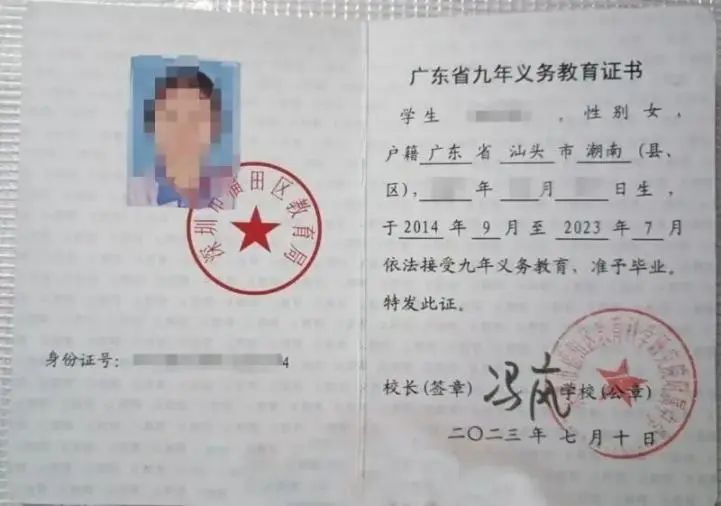 深圳市福田区教育局
身份证号：
4
广东省九年义务教育证书
学生 ，性别女，
户籍广东省汕头市潮南(县、
区)， 年 月 日生，
于2014年9月至2023年7月
依法接受九年义务教育、准予毕业。
特发此证。
校长(签章) 冯 学校(公章)
二〇二三年七月十日